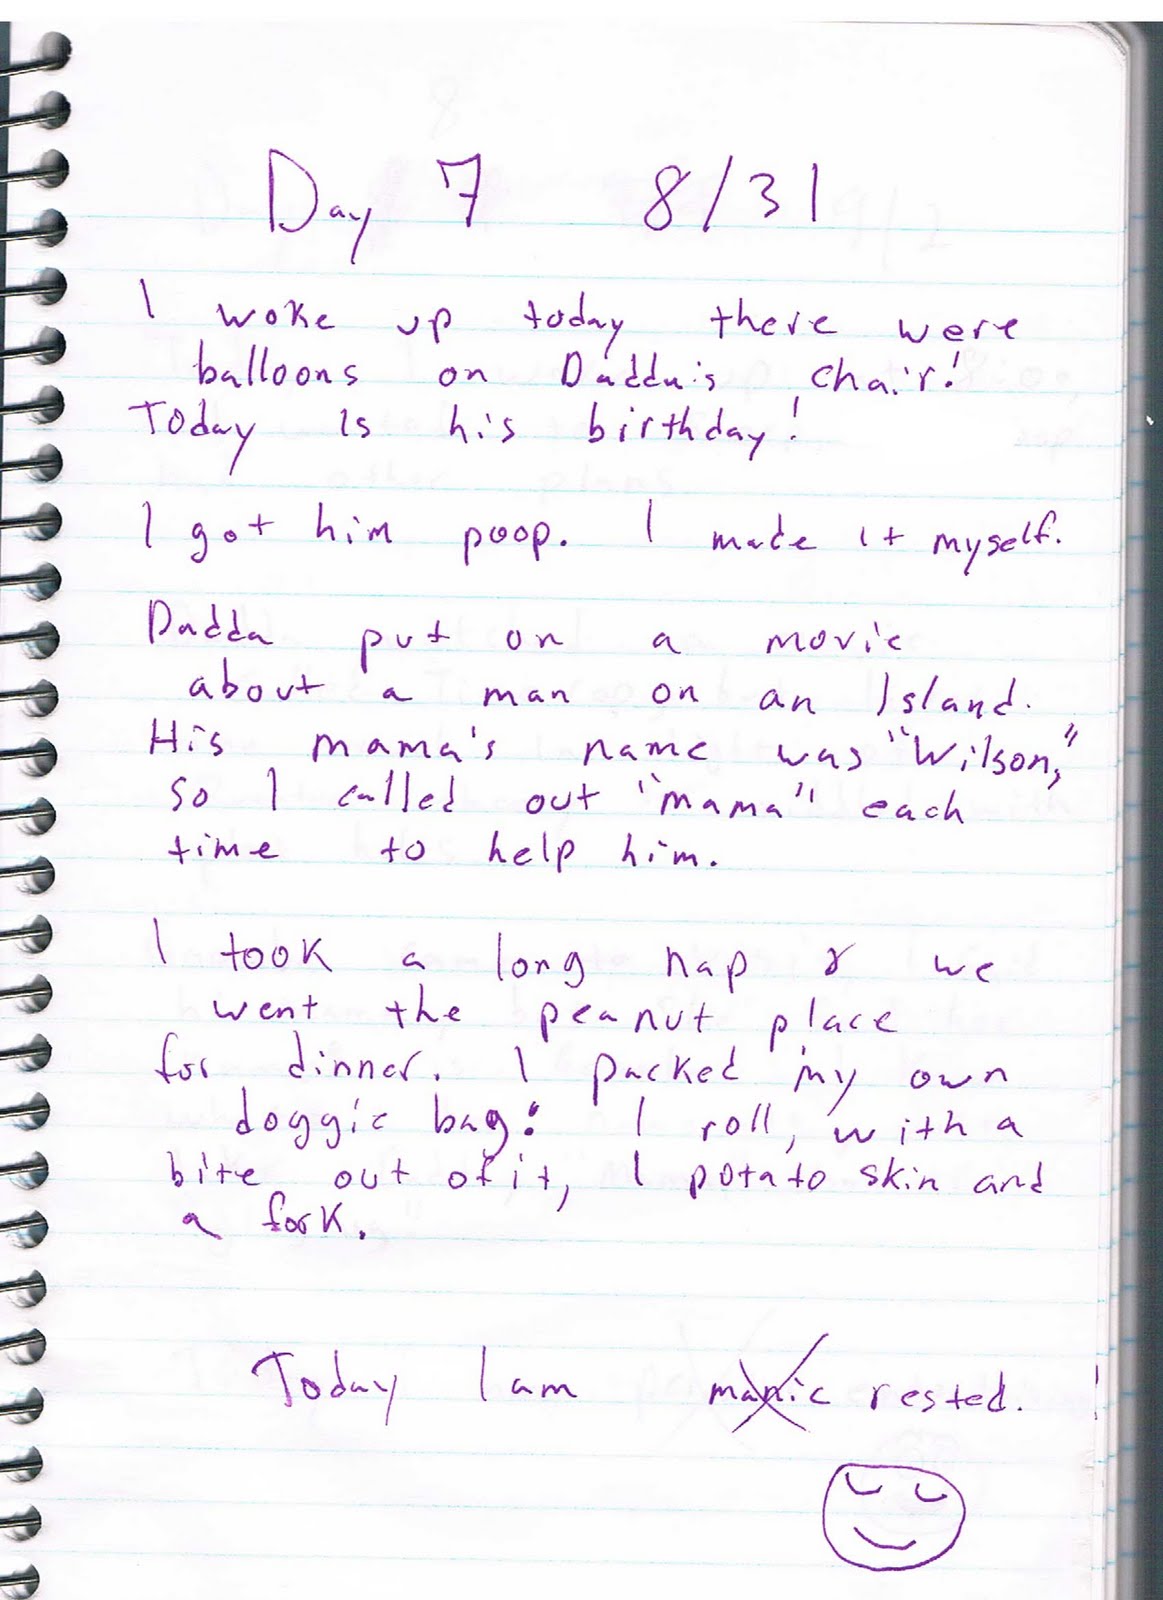 Day 7 8/31
I woke up today there were
balloons on Dadda's chair!
Today is his birthday!
I got him poop. I made it myself.
Dadda put on a movie
about a man on an Island.
His mama's name was "Wilson,"
so I called out "mama" each
time to help him.
I took a long nap & we
went the peanut place
for dinner. I packed my own
doggie bag: 1 roll, with a
bite out of it, 1 potato skin and
a fork.
Today I am manic rested.